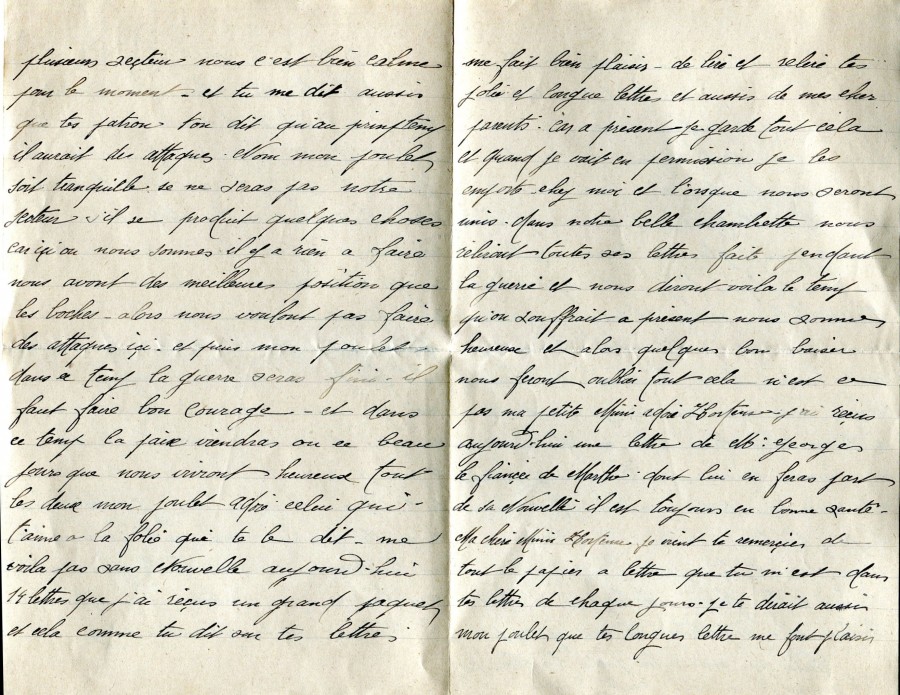 plusieurs secteur nous c'est bien calme
pour le moment - et tu me dit aussis
que tes patron t'on dit qu'au printemp
il aurait des attaques. Nom mon poulet
soit tranquille se ne seras pas notre
secteur s'il se produit quelques choses
car içi ou nous sommes il y a rien a faire
nous avont des meilleures position que
les boches - alors nous voulont pas faire
des attaques içi - et puis mon poulet
dans temp la guerre seras finis - il
faut faire bon courage - et dans
ce temp la paix viendras ou ce beau
jours que nous vivront heureux tout
les deux mon poulet adoré celui qui -
t'aime a la folie qui te le dit - me
voila pas sans Nouvelle aujourd'hui
14 lettres que j'ai reçus un grand paquet
et cela comme tu dit sur tes lettres
me fait bien plaisir - de lire et relire tes
jolie et longue lettres et aussis de mes cher
parents. Car a présent je garde tout cela
et quand je vait en permission je les
emporte chez moi et lorsque nous seront
unis. dans notre belle chambrette nous
reliront toutes ses lettres faits pendant
la guerre et nous diront voila le temp
qu'on souffrait a présent nous sommes
heureux et alors quelques bon baiser
nous feront oublier tout cela n'est ce
pas ma petite Mimis adoré Hortense j'ai reçus
aujourd'hui une lettre de Mr. Georges
le fiançée de Marthe dont lui en feras part
de sa Nouvelle il est toujours en bonne santé -
Ma chère Mimis Hortense je vient te remerçier de
tout le papier a lettre que tu m'est dans
tes lettres de chaque jours. je te dirait aussis
mon poulet que tes longues lettre me font plaisir